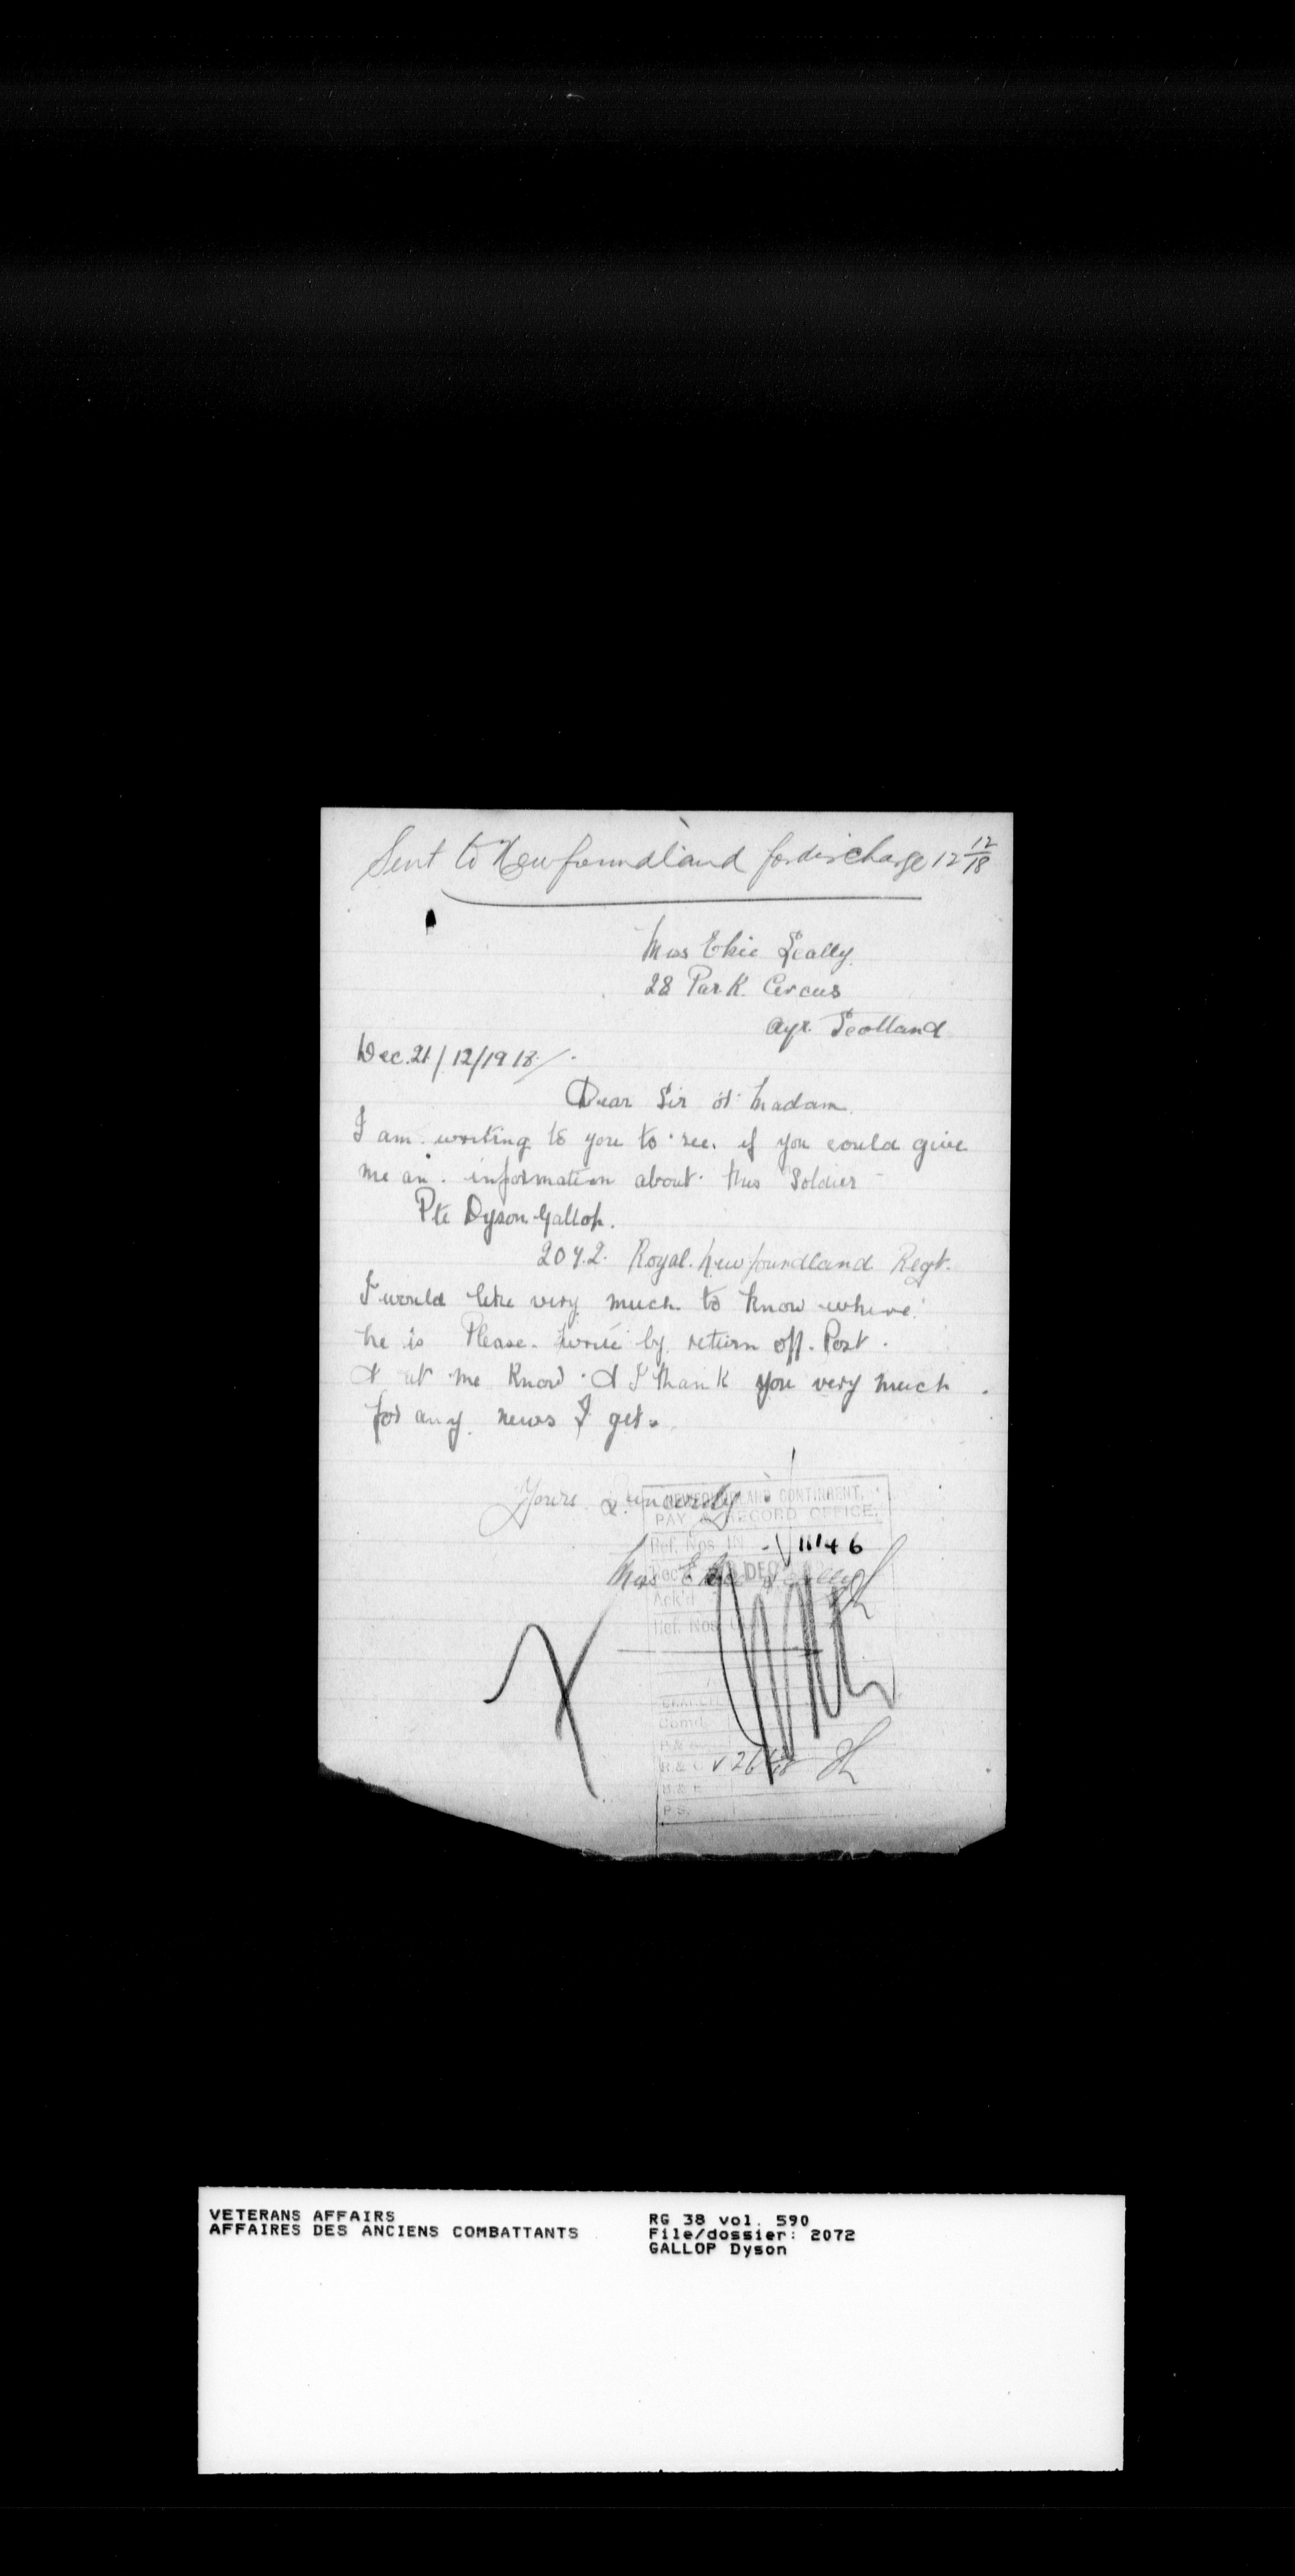 Sent to Newfoundland for discharge 12 12/18
Miss Elsie Scally.
28 Park. Circus
Ayr. Scotland
Dec. 21/12/1918/.
Dear Sir or Madam.
I am. writing to you to see. if you could give
me an. information about this Soldier
Pte Dyson. Gallop.
2072. Royal. Newfoundland Regt.
I would like very much to know where
he is Please. write by return off. Post.
& let me know. & I thank you very much.
for any news I get.
Yours Sincerely
NEWFOUNDLAND CONTINGENT.
PAY & RECORD OFFICE.
Ref. Nos. IN 11146
Miss Elsie Scally
Rec'd DEC
Ack'd
Ref. Nos.
Comd.
R & C 26/12/18
P.S.
VETERANS AFFAIRS
AFFAIRES DES ANCIENS COMBATTANTS
RG 38 vol. 590
File/dossier: 2072
GALLOP Dyson